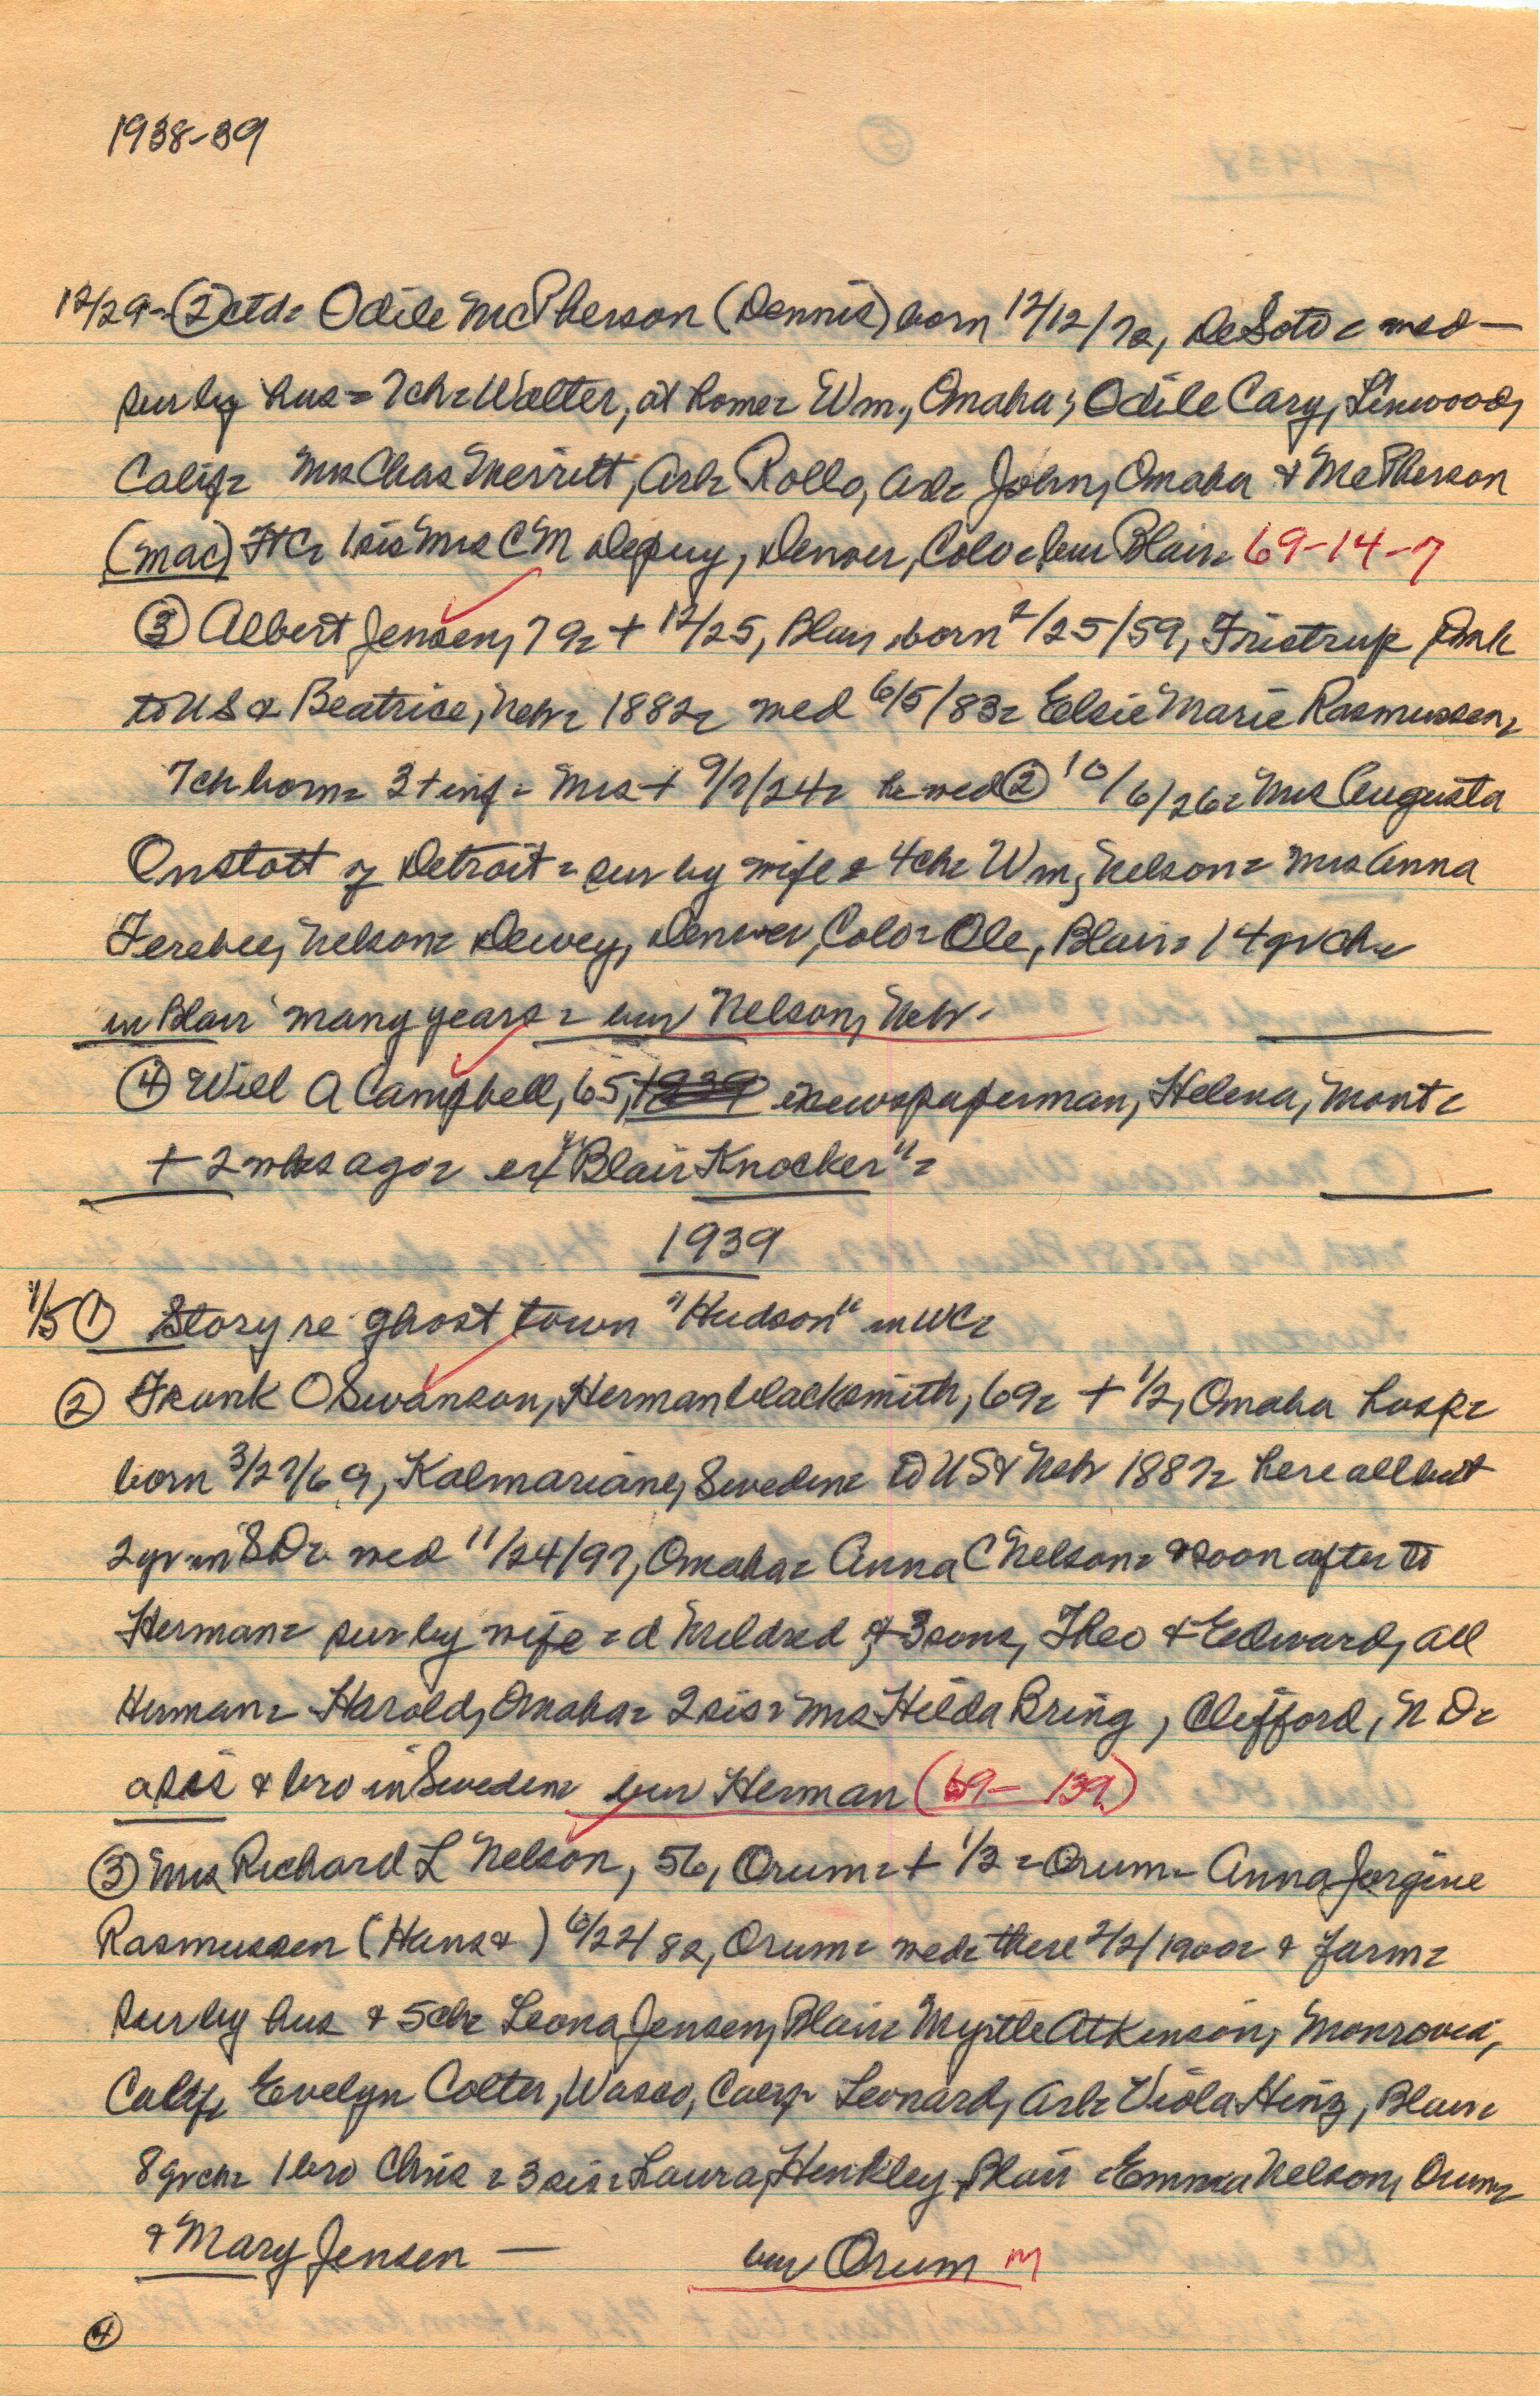 1938-39
12/29- (2) ctd= Odile McPherson (Dennis) born 12/12/72, DeSoto = med -
sur by hus = 7ch= Walter, at home= Wm., Omaha; Odile Cary, Linwood,
Calif= Mrs Chas Merritt, Ark= Rollo, Ark= John, Omaha & McPherson
(Mac) FtC= 1 sis Mrs C M Depuy, Denver, Colo = bur Blair= 69-14-7
(3) Albert Jensen, 79= + 12/25, Blair, born 2/25/59, Fristrup, Dmk
to US & Beatrice, Nebr= 1882= med 6/5/83= Elsie Marie Rasmussen=
7ch born= 3 + inf = Mrs + 9/7/24= he med (2) 10/6/26= Mrs Augusta
Onstott of Detroit = sur by wife & 4ch= Wm, Nelson= Mrs Anna
Ferebee, Nelson= Dewey, Denver, Colo= Ole, Blair= 14 grch=
in Blair many years = bur Nelson, Nebr.
(4) Will A Campbell, 65, 1939 newspaperman, Helena, Mont=
+ 2 wks ago= ex "Blair Knocker" =
1939
1/5 (1) Story re ghost town "Hudson" in WC=
(2) Frank O Swanson, Herman blacksmith, 69= + 1/2, Omaha hosp=
born 3/27/69, Kalmariane, Sweden= to US & Nebr 1887= here all but
2 yr in SD= med 11/24/97, Omaha= Anna C Nelson= & soon after to
Herman= sur by wife = d Mildred & 3 sons, Theo & Edward, all
Herman= Harold, Omaha= 2 sis= Mrs Hilda Bring, Clifford, N D=
a sis & bro in Sweden= bur Herman (69- 139)
(3) Mrs Richard L Nelson, 56, Orum= + 1/3 = Orum= Anna Jorgine
Rasmussen (Hans & ) 6/22/82, Orum= med= there 2/2/1900= & farm=
sur by hus & 5ch= Leona Jensen, Blair= Myrtle Atkinson, Monrovia,
Calif= Evelyn Colter, Wasco, Calif= Leonard, Ark= Viola Hinz, Blair=
8 grch= 1 bro Chris = 3 sis= Laura Henkley, Blair = Emma Nelson, Orum=
& Mary Jensen - bur Orum M
(4)